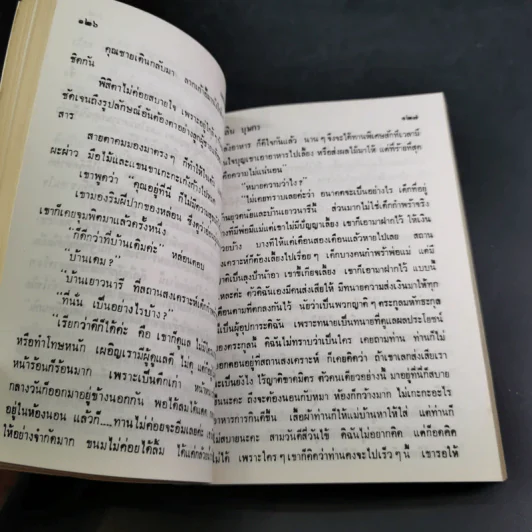 ๑๒๖
คุณชายเดินกลับมา
ชิดกัน
พิสิตาไม่ค่อยสบายใจ เพราะ
ชัดเจนถึงรูปลักษณ์อันต้องตาอย่าง
สาร
สายตาคมมองมาตรงๆ ก็ทำให้
ผะผ่าว มือไม้และแขนขาเกะกะเก้งก้าง
เขาพูดว่า "คุณอยู่ที่นี่ ก็ไม่มีความ
เขามองริมฝีปากของหล่อน
เขาก็เคยจุมพิตมาแล้วครั้งหนึ่ง
"ก็ดีกว่าที่บ้านเดิมค่ะ" หล่อนตอบ
"บ้านเดิม?
"บ้านเยาวนารี ที่สถานสงเคราะห์เด็ก
"ที่นั่น เป็นอย่างไรบ้าง?
"เรียกว่าดีก็ได้ค่ะ คือ เขาก็ดูแล ไม่
หรือทำโทษหนัก เผอิญเรามีผู้ดูแลดี ไม่ดุ แต่
หน้าร้อนก็ร้อนมาก เพราะเป็นตึกเก่า หน้า
กลางวันก็ออกมาอยู่ข้างนอกกัน พอได้ลมได้แดด
อยู่ในห้องนอน แล้วก็....ทานไม่ค่อยจะอิ่มเลยค่ะ
ให้อย่างจำกัดมาก ขนมไม่ค่อยได้ลิ้ม
๑๒๗
บุษกร
อาหาร ก็ดีใจกันแล้ว นานๆ จึงจะได้ทานพิเศษสักทีเวลามี
ใจบุญเขาเอาอาหารไปเลี้ยง หรือส่งผลไม้มาให้ แต่ที่ร้ายที่สุด
คือความไม่แน่นอน"
"หมายความว่าไง?"
"ไม่เคยทราบเลยค่ะว่า อนาคตจะเป็นอย่างไร เด็กที่อยู่
และบ้านเยาวนารีนั้น ส่วนมากไม่ใช่เด็กกำพร้าจริง
แม่แต่เขาไม่มีปัญญาเลี้ยง เขาก็เอามาฝากไว้ ให้เงิน
บ้าง บางทีให้แต่เดือนสองเดือนแล้วหายไปเลย สถาน
สงเคราะห์ก็ต้องเลี้ยงไปเรื่อยๆ เด็กบางคนกำพร้าพ่อแม่ แต่มี
เป็นลุงป้าน้าอา เขาขี้เกียจเลี้ยง เขาก็เอามาฝากไว้ แบบนี้
แหละค่ะ ตัวดิฉันเองมีคนส่งเสียให้ มีทนายความส่งเงินมาให้ทุก
ตามที่ตกลงกันไว้ นัยว่าเป็นพวกญาติๆ ตระกูลมหัทธกุล
เป็นผู้อุปการะดิฉัน เพราะทนายเป็นทนายที่ดูแลผลประโยชน์
ของตระกูลนี้ ดิฉันไม่ทราบว่าเป็นใคร เคยถามท่าน ท่านก็ไม่
ตอนอยู่ที่สถานสงเคราะห์ ก็เคยคิดว่า ถ้าเขาเลิกส่งเสียเรา
จะเป็นยังไง ไร้ญาติขาดมิตร ตัวคนเดียวอย่างนี้ มาอยู่ที่นี่ก็สบาย
ค่ะ ถึงจะต้องนอนกับหมา ห้องก็กว้างมาก ไม่เกะกะอะไร
อาหารการกินดีขึ้น เสื้อผ้าท่านก็ให้แม่บ้านหาให้ใส่ แต่ท่านก็
ไม่สบายนะคะ สามวันดีสี่วันไข้ ดิฉันไม่อยากคิด แต่ก็อดคิด
ไม่ได้ เพราะใครๆ เขาก็คิดว่าท่านคงจะไปเร็วๆ นี้ เขารอให้